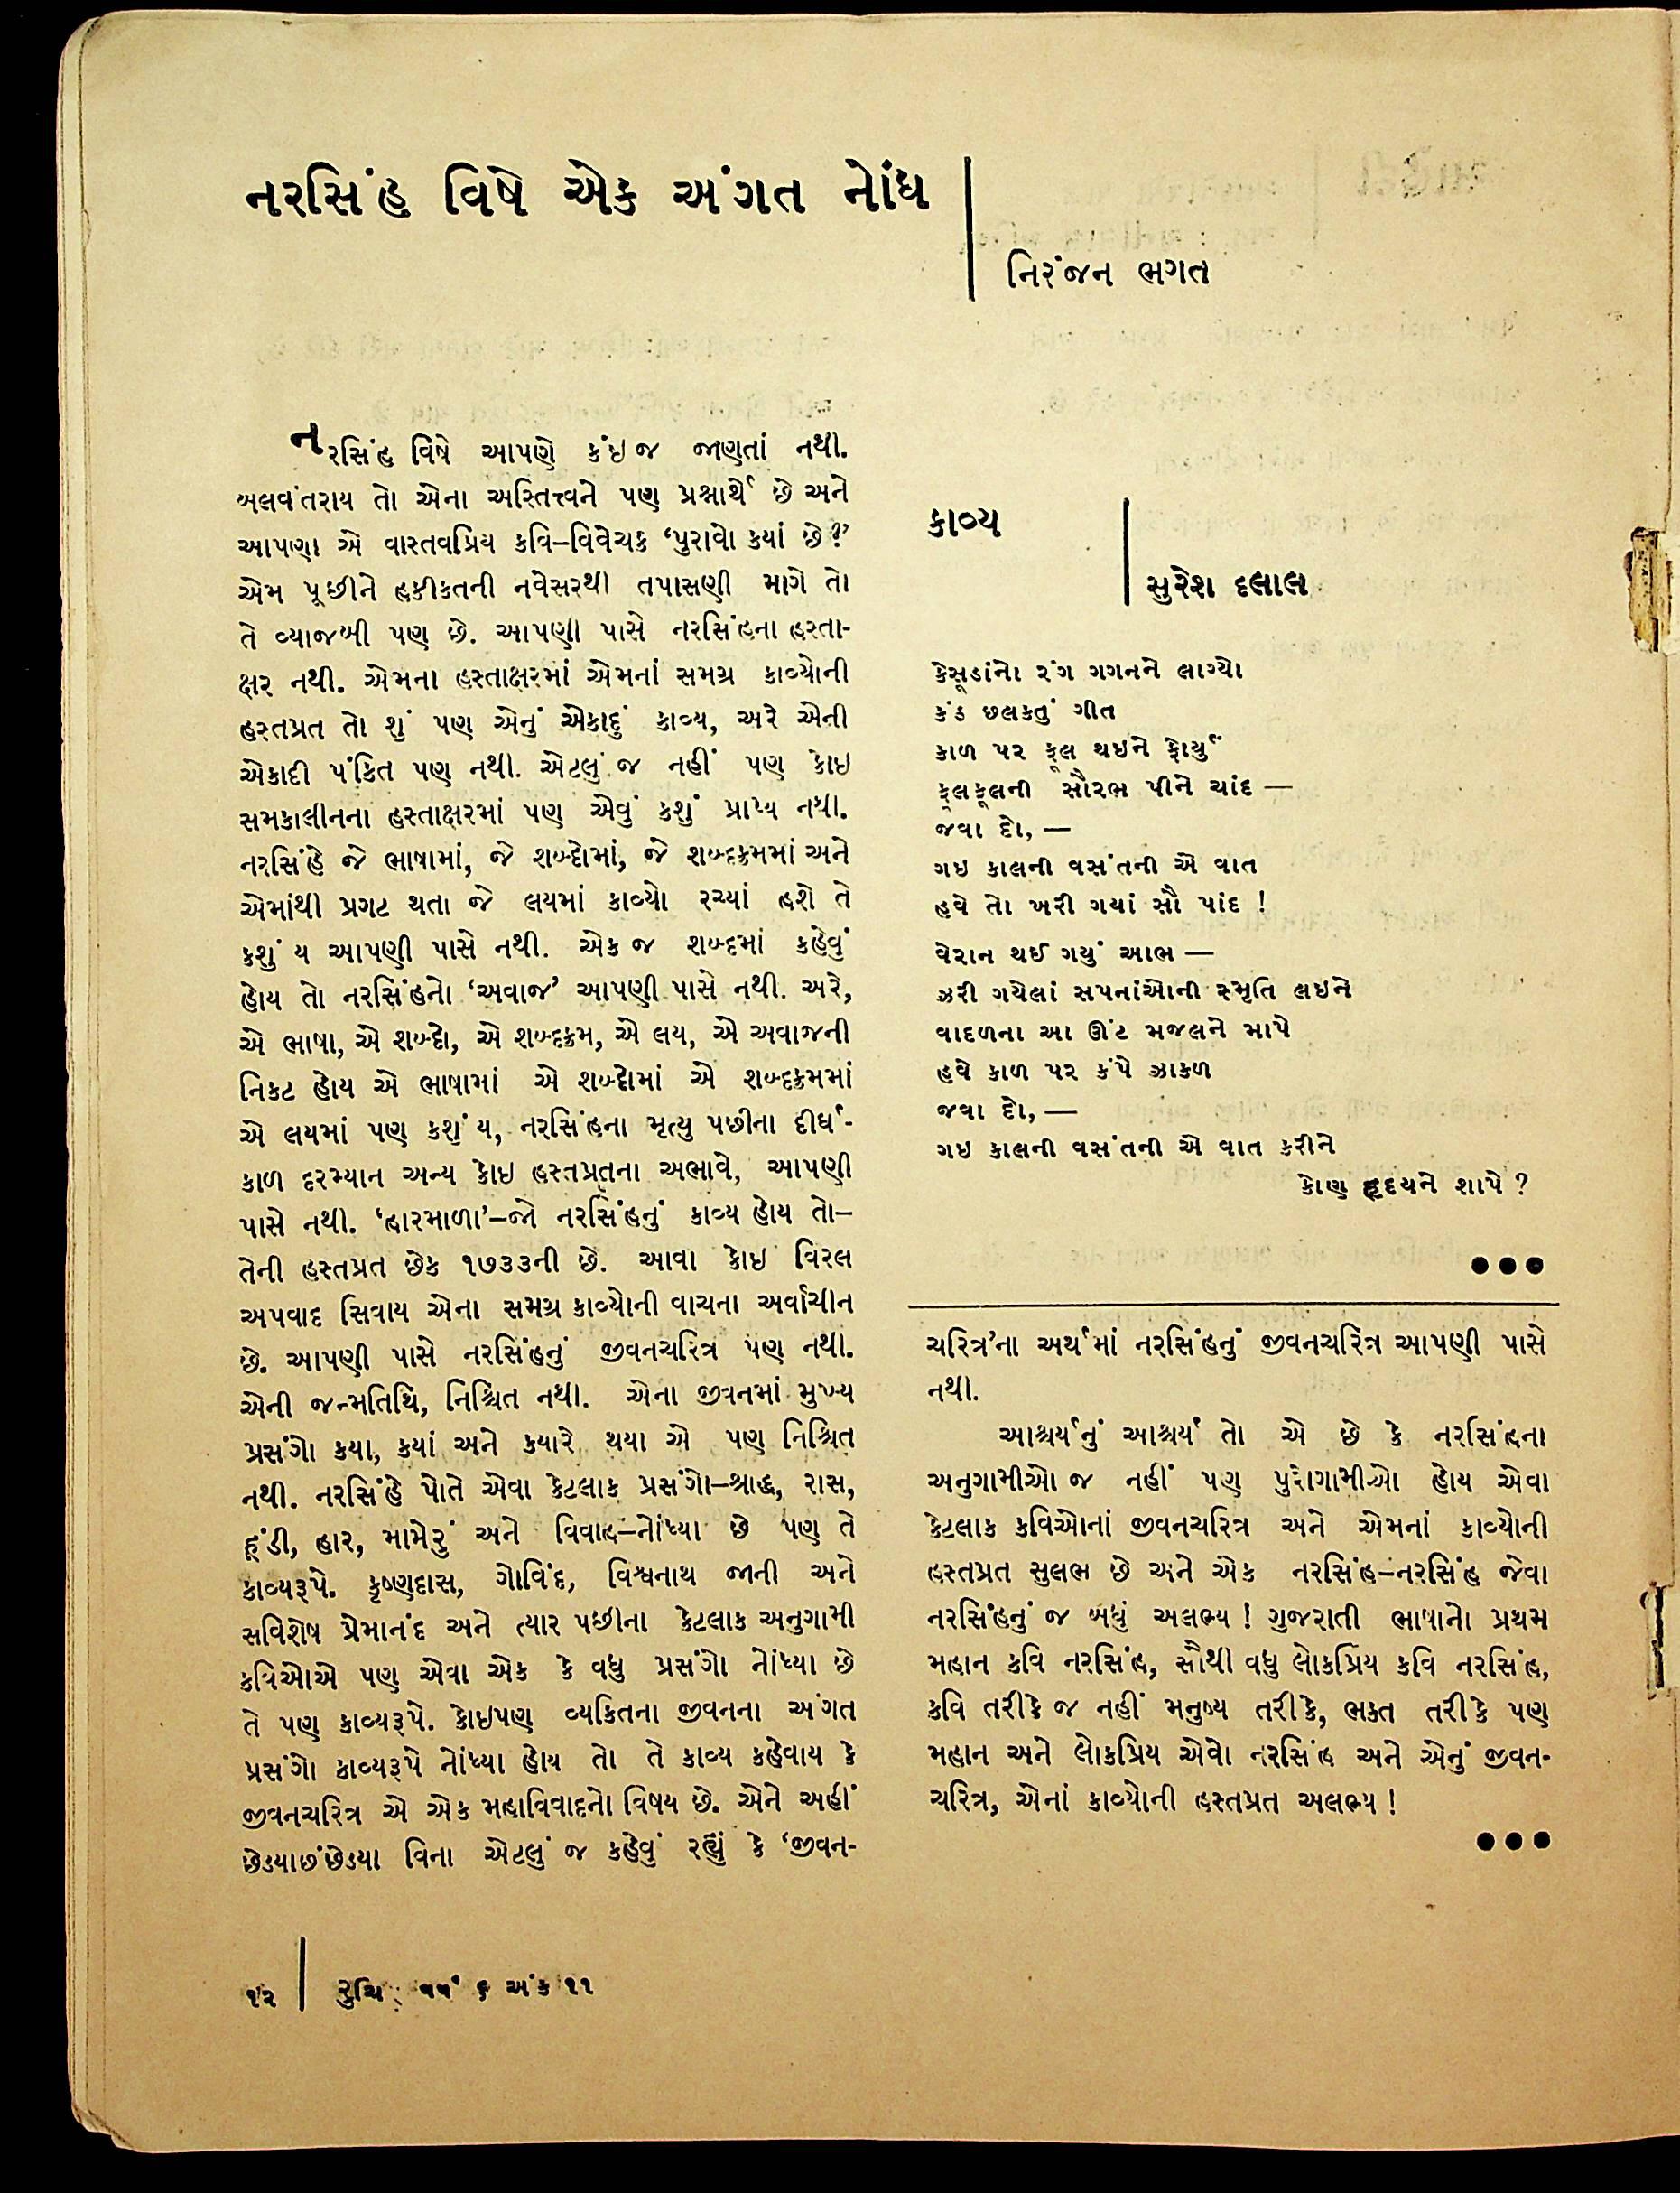 નરસિંહ વિષે એક અંગત નોંધ
નિરંજન ભગત
નરસિંહ વિષે આપણે કંઇ જ જાણતાં નથી.
બલવંતરાય તો એના અસ્તિત્વને પણ પ્રશ્નાર્થે છે અને
આપણા એ વાસ્તવપ્રિય કવિ–વિવેચક ‘પુરાવો કયાં છે?’
એમ પૂછીને હકીકતની નવેસરથી તપાસણી માગે તો
તે વ્યાજબી પણ છે. આપણી પાસે નરસિંહના હસ્તા-
ક્ષર નથી. એમના હસ્તાક્ષરમાં એમનાં સમગ્ર કાવ્યોની
હસ્તપ્રત તો શું પણ એનું એકાદું કાવ્ય, અરે એની
એકાદી પંકિત પણ નથી. એટલું જ નહીં પણ કોઇ
સમકાલીનના હસ્તાક્ષરમાં પણ એવું કશું પ્રાપ્ય નથી.
નરસિંહે જે ભાષામાં, જે શબ્દોમાં, જે શબ્દક્રમમાં અને
એમાંથી પ્રગટ થતા જે લયમાં કાવ્યો રચ્યાં હશે તે
કશું ય આપણી પાસે નથી. એક જ શબ્દમાં કહેવું
હોય તો નરસિંહનો ‘અવાજ’ આપણી પાસે નથી. અરે,
એ ભાષા, એ શબ્દો, એ શબ્દક્રમ, એ લય, એ અવાજની
નિકટ હોય એ ભાષામાં એ શબ્દોમાં એ શબ્દક્રમમાં
એ લયમાં પણ કશું ય, નરસિંહના મૃત્યુ પછીના દીર્ઘ-
કાળ દરમ્યાન અન્ય કોઇ હસ્તપ્રતના અભાવે, આપણી
પાસે નથી. ‘હારમાળા’–જો નરસિંહનું કાવ્ય હોય તો–
તેની હસ્તપ્રત છેક ૧૭૩૩ની છે. આવા કોઇ વિરલ
અપવાદ સિવાય એના સમગ્ર કાવ્યોની વાચના અર્વાચીન
છે. આપણી પાસે નરસિંહનું જીવનચરિત્ર પણ નથી.
એની જન્મતિથિ, નિશ્ચિત નથી. એના જીવનમાં મુખ્ય
પ્રસંગો કયા, કયાં અને કયારે થયા એ પણ નિશ્ચિત
નથી. નરસિંહે પોતે એવા કેટલાક પ્રસંગો–શ્રાદ્ધ, રાસ,
હૂંડી, હાર, મામેરું અને વિવાહ–નોંધ્યા છે પણ તે
કાવ્યરૂપે. કૃષ્ણદાસ, ગોવિંદ, વિશ્વનાથ જાની અને
સવિશેષ પ્રેમાનંદ અને ત્યાર પછીના કેટલાક અનુગામી
કવિઓએ પણ એવા એક કે વધુ પ્રસંગો નોંધ્યા છે
તે પણ કાવ્યરૂપે. કોઇપણ વ્યકિતના જીવનના અંગત
પ્રસંગો કાવ્યરૂપે નોંધ્યા હોય તો તે કાવ્ય કહેવાય કે
જીવનચરિત્ર એ એક મહાવિવાદનો વિષય છે. એને અહીં
છેડયાછંછેડયા વિના એટલું જ કહેવું રહ્યું કે ‘જીવન-
કાવ્ય
સુરેશ દલાલ
કેસૂડાંનો રંગ ગગનને લાગ્યો
કંઠ છલકતું ગીત
કાળ પર ફૂલ થઇને ફોર્યું
ફૂલફૂલની સૌરભ પીને ચાંદ —
જવા દો, —
ગઇ કાલની વસંતની એ વાત
હવે તો ખરી ગયાં સૌ પાંદ !
વેરાન થઈ ગયું આભ —
ઝરી ગયેલાં સપનાંઓની સ્મૃતિ લઇને
વાદળના આ ઊંટ મજલને માપે
હવે કાળ પર કંપે ઝાકળ
જવા દો, —
ગઇ કાલની વસંતની એ વાત કરીને
કોણ હૃદયને શાપે ?
●●●
ચરિત્ર’ના અર્થમાં નરસિંહનું જીવનચરિત્ર આપણી પાસે
નથી.
આશ્ચર્યનું આશ્ચર્ય તો એ છે કે નરસિંહના
અનુગામીઓ જ નહીં પણ પુરોગામીઓ હોય એવા
કેટલાક કવિઓનાં જીવનચરિત્ર અને એમનાં કાવ્યોની
હસ્તપ્રત સુલભ છે અને એક નરસિંહ–નરસિંહ જેવા
નરસિંહનું જ બધું અલભ્ય ! ગુજરાતી ભાષાનો પ્રથમ
મહાન કવિ નરસિંહ, સૌથી વધુ લોકપ્રિય કવિ નરસિંહ,
કવિ તરીકે જ નહીં મનુષ્ય તરીકે, ભકત તરીકે પણ
મહાન અને લોકપ્રિય એવો નરસિંહ અને એનું જીવન-
ચરિત્ર, એનાં કાવ્યોની હસ્તપ્રત અલભ્ય !
●●●
૧૨ | રુચિ : વર્ષ ૬ અંક ૧૧